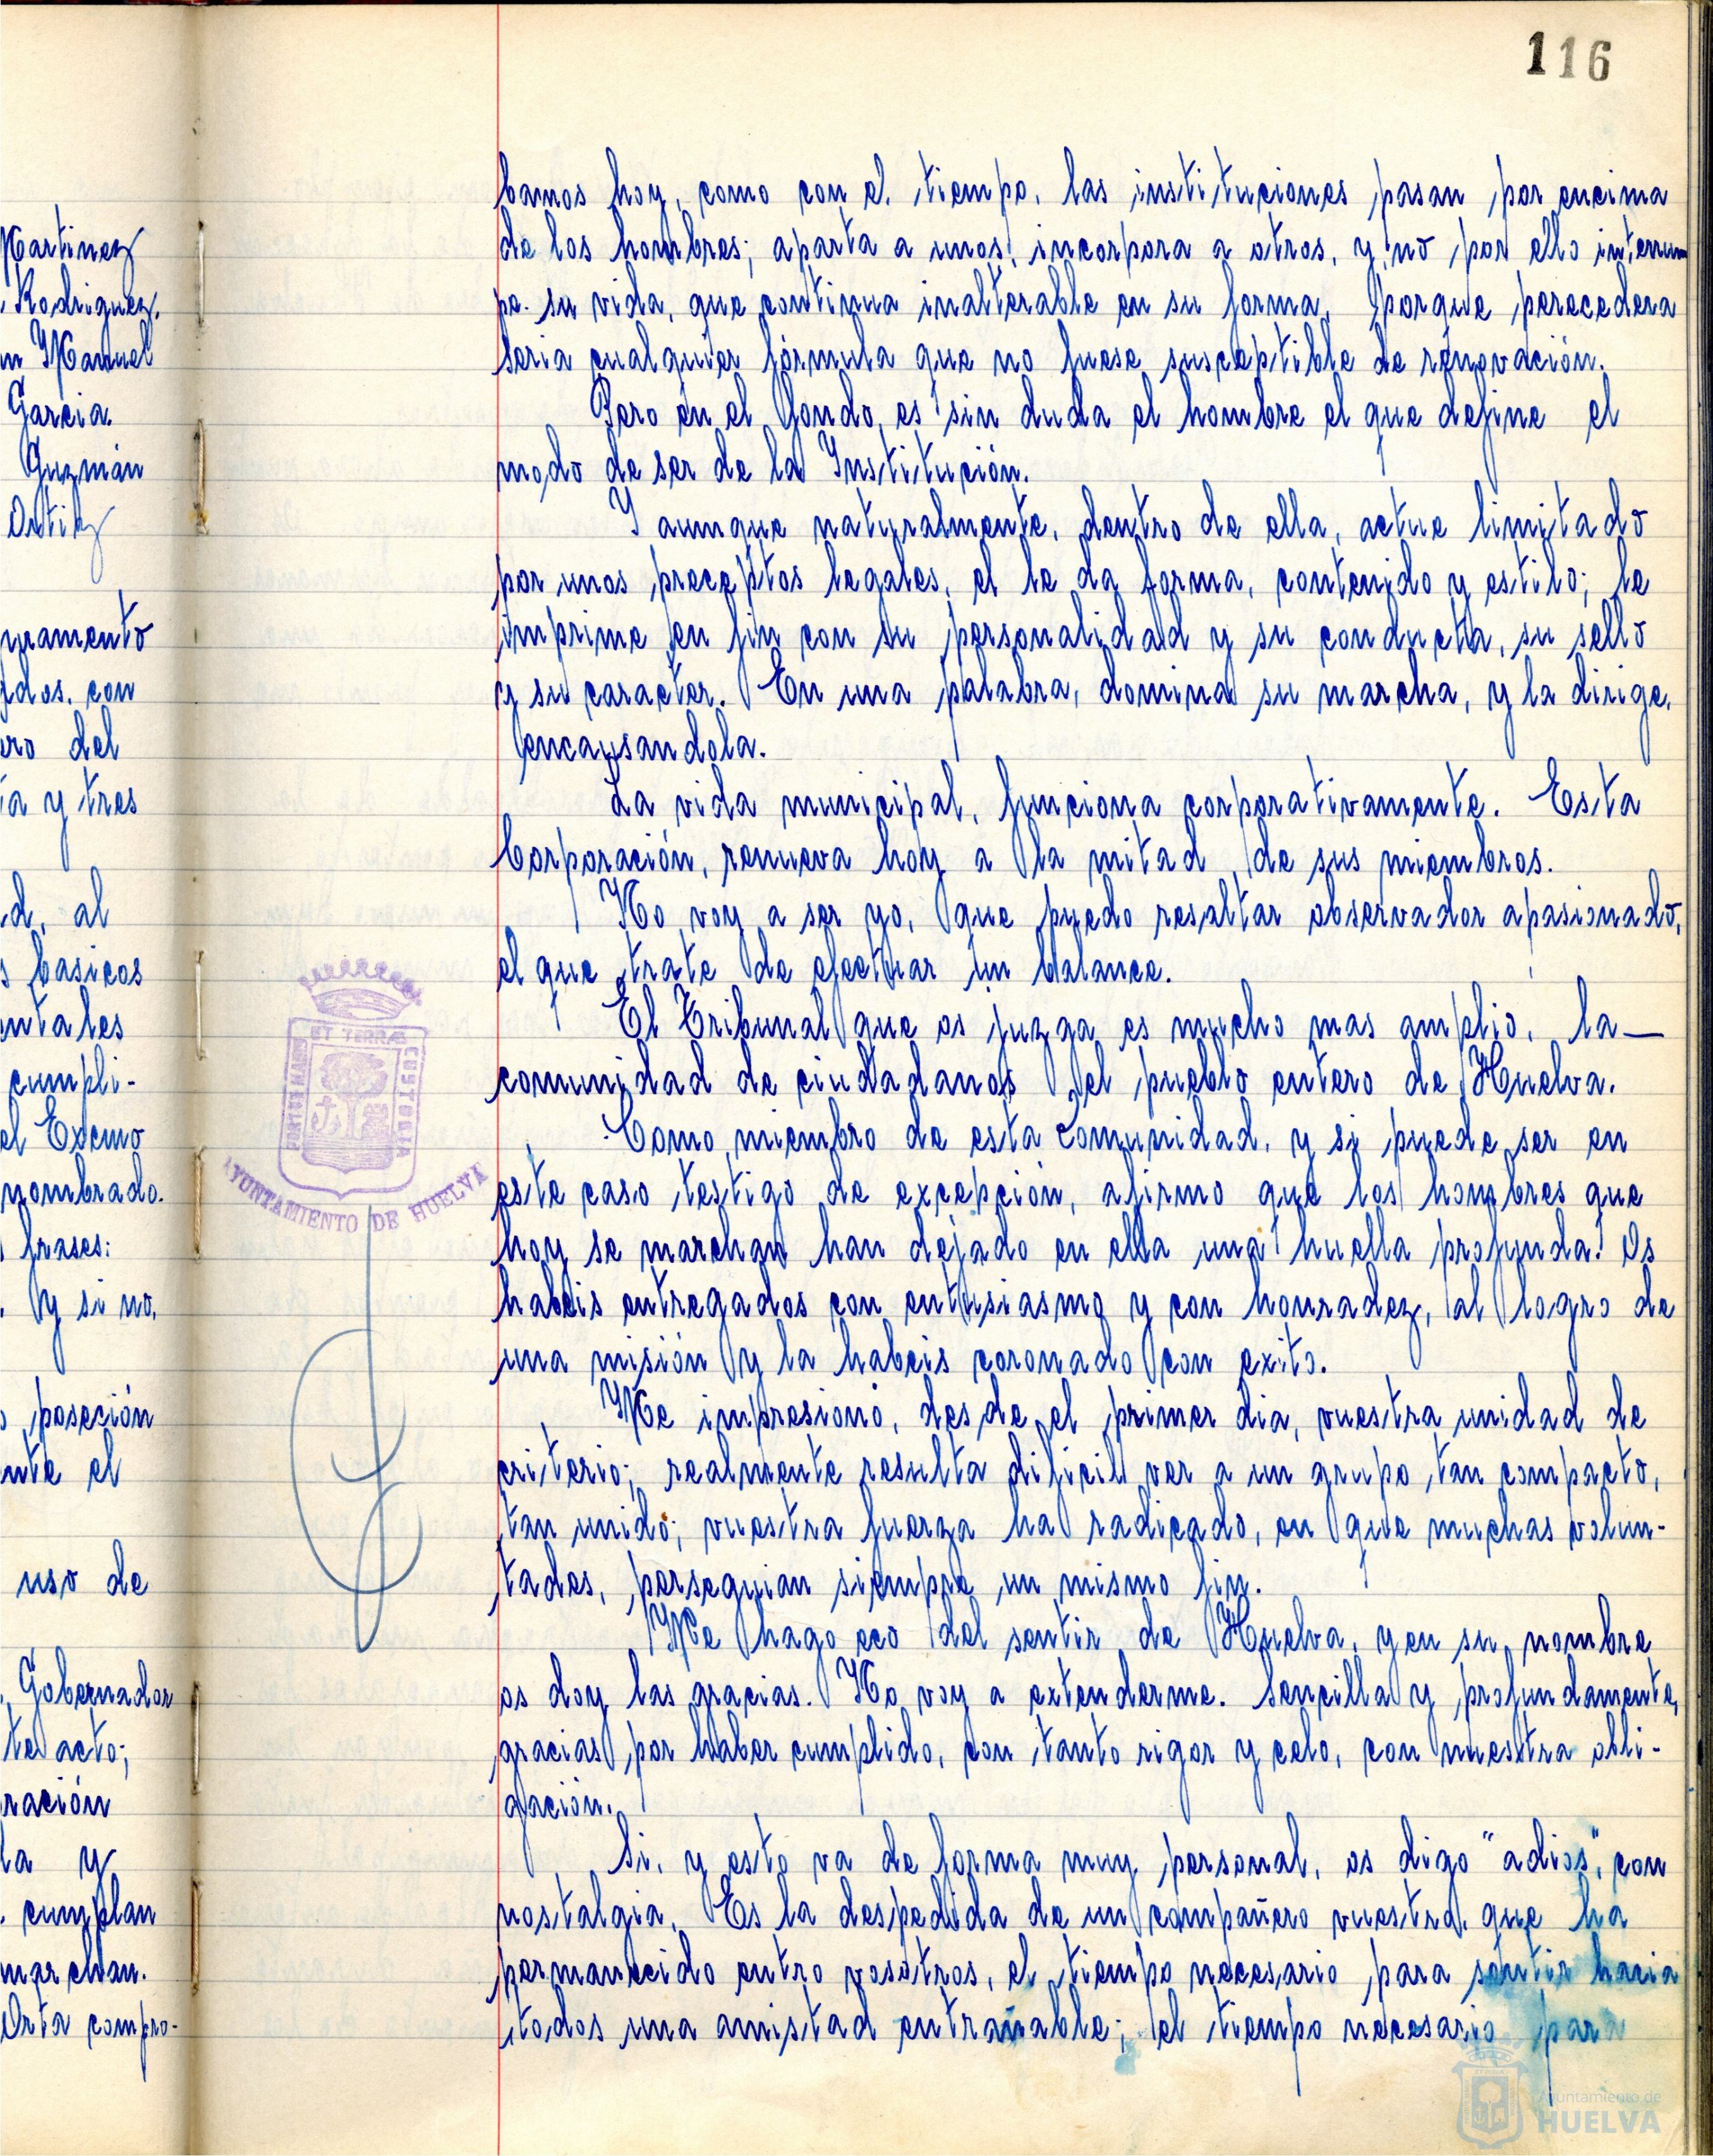 116
Martinez
Rodriguez.
Manuel
Garcia.
Guzmán
Ortiz
juramento
con
del
y tres
al
basicos
cumpli-
el Excmo
nombrado.
frases:
y si no,
poseción
el
uso de
Gobernador
acto;
la y
cumplan
marchan.
Orta compro-
bamos hoy, como con el tiempo, las instituciones pasan por encima
de los hombres; aparta a unos, incorpora a otros, y no por ello interrum
pe su vida, que continua inalterable en su forma, porque perecedera
seria cualquier fórmula que no fuese susceptible de renovación.
Pero en el fondo, es sin duda el hombre el que define el
modo de ser de la Institución.
Y aunque naturalmente, dentro de ella, actue limitado
por unos preceptos legales, el le da forma, contenido y estilo; le
imprime en fin con su personalidad y su conducta, su sello
y su caracter. En una palabra, domina su marcha, y la dirige,
encausandola.
La vida municipal, funciona corporativamente. Esta
Corporación, renueva hoy a la mitad de sus miembros.
No voy a ser yo, que puedo resaltar observador apasionado,
el que trate de efectuar un balance.
El Tribunal que os juzga es mucho mas amplio, la—
comunidad de ciudadanos del pueblo entero de Huelva.
Como miembro de esta Comunidad, y si puede ser en
este caso testigo de excepción, afirmo que los hombres que
hoy se marchan han dejado en ella una huella profunda. Os
habeis entregados con entusiasmo y con honradez, al logro de
una misión y la habeis coronado con exito.
Me impresionó, desde el primer dia, vuestra unidad de
criterio; realmente resulta dificil ver a un grupo tan compacto,
tan unido; vuestra fuerza ha radicado, en que muchas volun-
tades, perseguian siempre un mismo fin.
Me hago eco del sentir de Huelva, y en su nombre
os doy las gracias. No voy a extenderme. Sencilla y profundamente,
gracias por haber cumplido, con tanto rigor y celo, con nuestra obli-
gación.
Si, y esto va de forma muy personal, os digo "adios", con
nostalgia. Es la despedida de un compañero vuestro, que ha
permanecido entre vosotros, el tiempo necesario para sentir hacia
todos una amistad entrañable; el tiempo necesario para
PORTUS MARIS ET TERRÆ CUSTODIA
AYUNTAMIENTO DE HUELVA
Ayuntamiento de
HUELVA